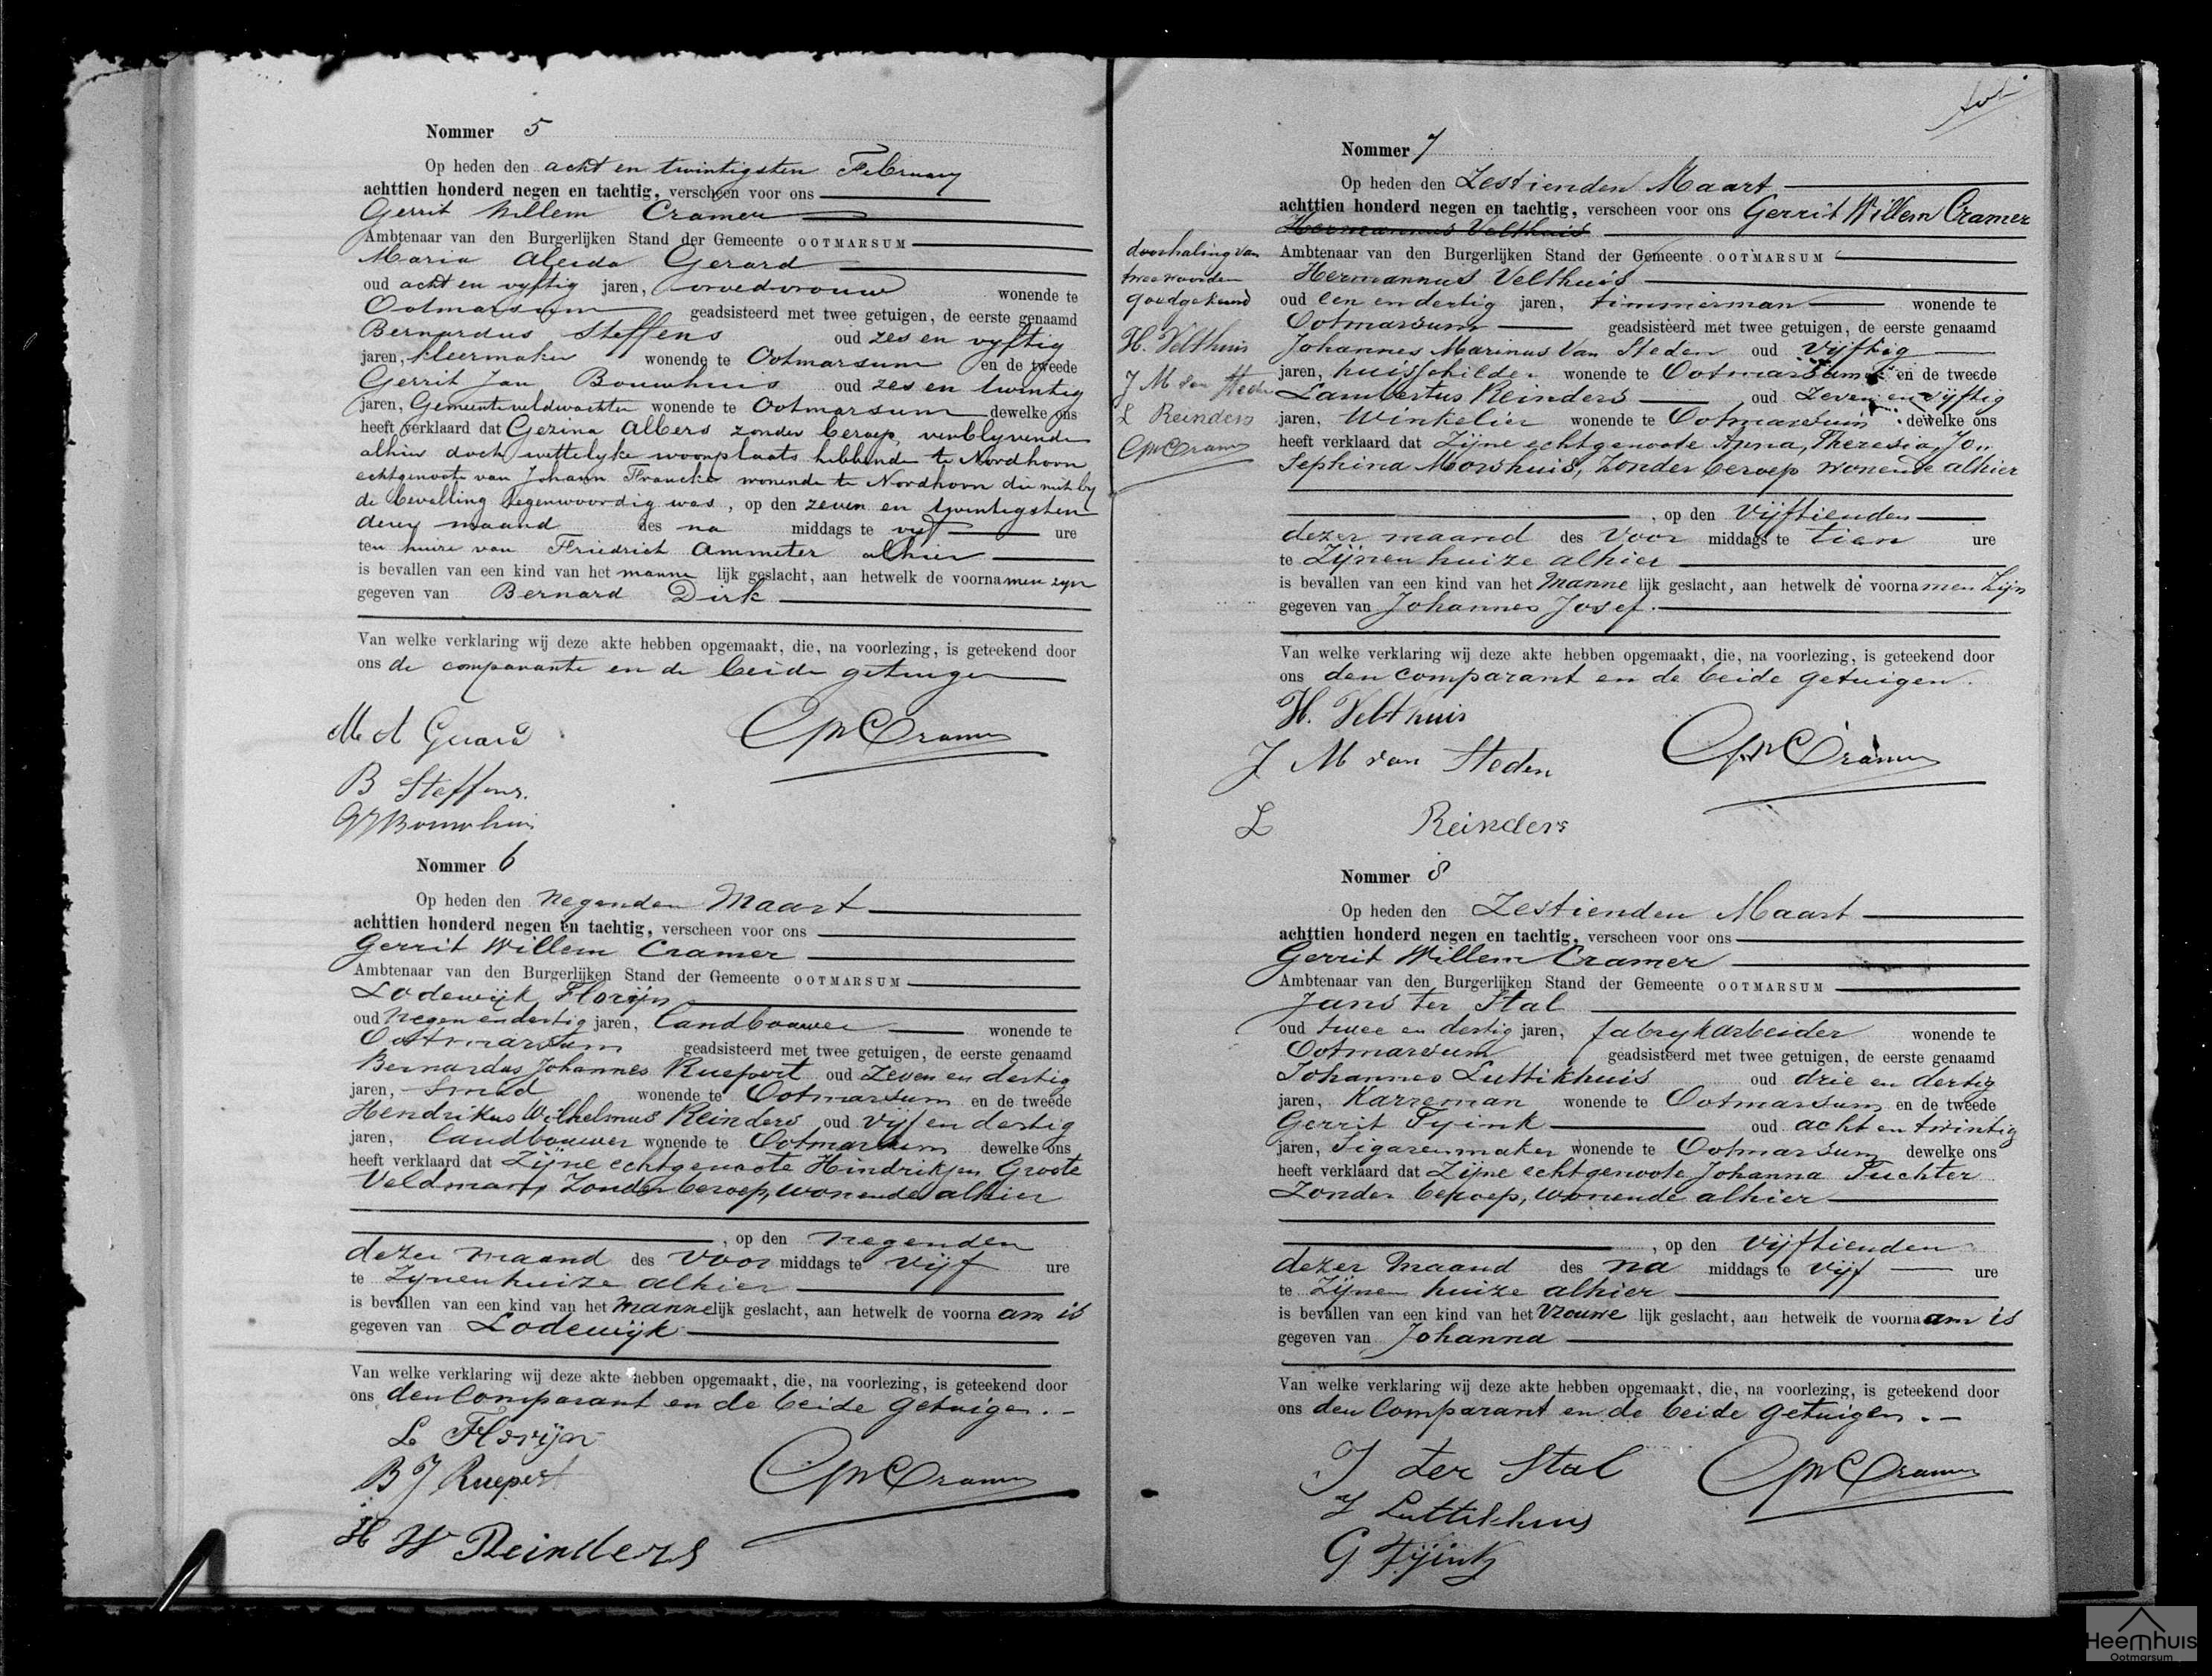 Nommer 5
Op heden den acht en twintigsten February
achttien honderd negen en tachtig, verscheen voor ons
Gerrit Willem Cramer
Ambtenaar van den Burgerlijken Stand der Gemeente OOTMARSUM
Maria Aleida Gerard
oud acht en vyftig jaren, vroedvrouw wonende te
Ootmarsum geadsisteerd met twee getuigen, de eerste genaamd
Bernardus Steffens oud zes en vyftig
jaren, kleermaker wonende te Ootmarsum en de tweede
Gerrit Jan Bouwhuis oud zes en twintig
jaren, Gemeenteveldwachter wonende te Ootmarsum dewelke ons
heeft verklaard dat Gezina Albers zonder beroep, verblyvende
alhier doch wettelyke woonplaats hebbende te Nordhorn
echtgenoote van Johann Francke wonende te Nordhorn die niet by
de bevalling tegenwoordig was, op den zeven en twintigsten
dezer maand des na middags te vyf ure
ten huize van Friedrich Ammeter alhier
is bevallen van een kind van het manne lijk geslacht, aan hetwelk de voornamen zyn
gegeven van Bernard Dirk
Van welke verklaring wij deze akte hebben opgemaakt, die, na voorlezing, is geteekend door
ons de comparante en de beide getuigen
M A Gerard
GW Cramer
B Steffens
GJ Bouwhuis
Nommer 6
Op heden den negenden Maart
achttien honderd negen en tachtig, verscheen voor ons
Gerrit Willem Cramer
Ambtenaar van den Burgerlijken Stand der Gemeente OOTMARSUM
Lodewijk Florijn
oud negen en dertig jaren, landbouwer wonende te
Ootmarsum geadsisteerd met twee getuigen, de eerste genaamd
Bernardus Johannes Ruepert oud zeven en dertig
jaren, smid wonende te Ootmarsum en de tweede
Hendrikus Wilhelmus Reinders oud vijf en dertig
jaren, landbouwer wonende te Ootmarsum dewelke ons
heeft verklaard dat Zijne echtgenoote Hindrikjen Groote
Veldman, zonder beroep, wonende alhier
, op den negenden
dezer maand des voor middags te vijf ure
te Zijnen huize alhier
is bevallen van een kind van het mannelijk geslacht, aan hetwelk de voorna am is
gegeven van Lodewijk
Van welke verklaring wij deze akte hebben opgemaakt, die, na voorlezing, is geteekend door
ons den Comparant en de beide getuigen.
L Florijn
B J Ruepert
GW Cramer
H W Reinders
Nommer 7
Op heden den Zestienden Maart
achttien honderd negen en tachtig, verscheen voor ons Gerrit Willem Cramer
Hermannus Velthuis
Ambtenaar van den Burgerlijken Stand der Gemeente OOTMARSUM
Hermannus Velthuis
oud een en dertig jaren, timmerman wonende te
Ootmarsum geadsisteerd met twee getuigen, de eerste genaamd
Johannes Marinus Van Steden oud Vijftig
jaren, huisschilder wonende te Ootmarsum en de tweede
Lambertus Reinders oud Zeven en vijftig
jaren, Winkelier wonende te Ootmarsum dewelke ons
heeft verklaard dat Zijne echtgenoote Anna, Theresia, Jo„
sephina Morshuis, zonder beroep wonende alhier
, op den Vijftienden
dezer maand des Voor middags te tien ure
te Zijnen huize alhier
is bevallen van een kind van het Manne lijk geslacht, aan hetwelk de voornamen Zijn
gegeven van Johannes Josef.
Van welke verklaring wij deze akte hebben opgemaakt, die, na voorlezing, is geteekend door
ons den Comparant en de beide getuigen.
H. Velthuis
J M van Steden
GW Cramer
L Reinders
doorhaling van
twee woorden
goedgekeurd
H. Velthuis
J M van Steden
L Reinders
GW Cramer
Nommer 8
Op heden den Zestienden Maart
achttien honderd negen en tachtig, verscheen voor ons
Gerrit Willem Cramer
Ambtenaar van den Burgerlijken Stand der Gemeente OOTMARSUM
Jans ter Stal
oud twee en dertig jaren, fabrykarbeider wonende te
Ootmarsum geadsisteerd met twee getuigen, de eerste genaamd
Johannes Luttikhuis oud drie en dertig
jaren, Karreman wonende te Ootmarsum en de tweede
Gerrit Tyink oud acht en twintig
jaren, Sigarenmaker wonende te Ootmarsum dewelke ons
heeft verklaard dat Zijne echtgenoote Johanna Tuchter
Zonder beroep, wonende alhier
, op den Vijftienden
dezer Maand des na middags te Vijf ure
te Zijnen huize alhier
is bevallen van een kind van het Vrouwe lijk geslacht, aan hetwelk de voorna am is
gegeven van Johanna
Van welke verklaring wij deze akte hebben opgemaakt, die, na voorlezing, is geteekend door
ons den Comparant en de beide getuigen.
J ter Stal
GW Cramer
J Luttikhuis
G Tijink
Heemhuis
Ootmarsum